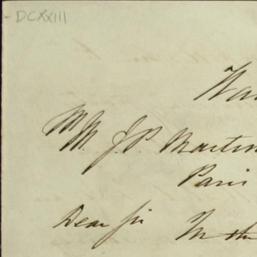 - DCXXIII
Mr J. P. Martin
Paris
Dear Sir In the